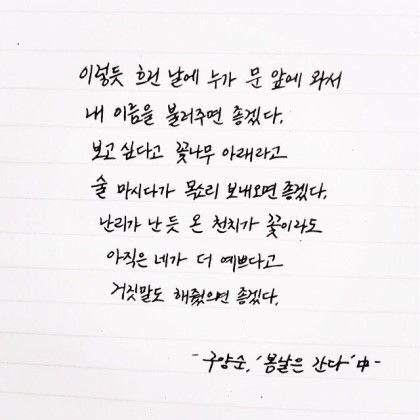 이렇듯 흐린 날에 누가 문 앞에 와서
내 이름을 불러주면 좋겠다.
보고 싶다고 꽃나무 아래라고
술 마시다가 목소리 보내오면 좋겠다.
난리가 난 듯 온 천지가 꽃이라도
아직은 네가 더 예쁘다고
거짓말도 해줬으면 좋겠다.
- 구양순, '봄날은 간다' 中 -